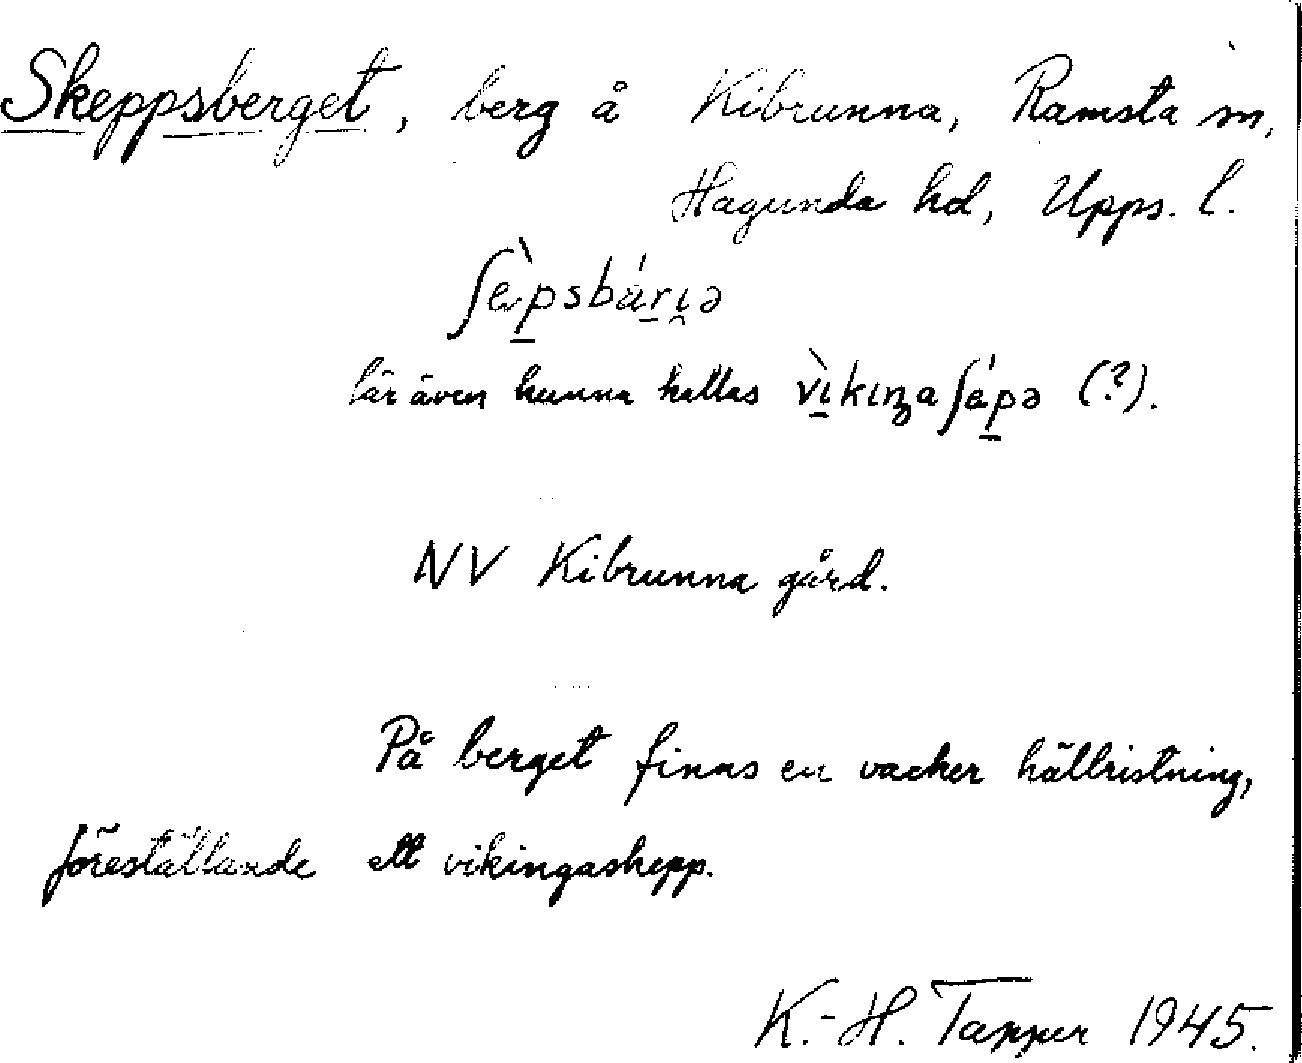 Skeppsberget, berg å Kibrunna, Ramsta sn,
Hagunda hd, Upps. l.
ʃὲpsbárı̯ə
lär även kunna kallas vìkıŋaʃépə (?).
NV Kibrunna gård.
På berget finns en vacker hällristning,
föreställande ett vikingaskepp.
K.-H. Tapper 1945.